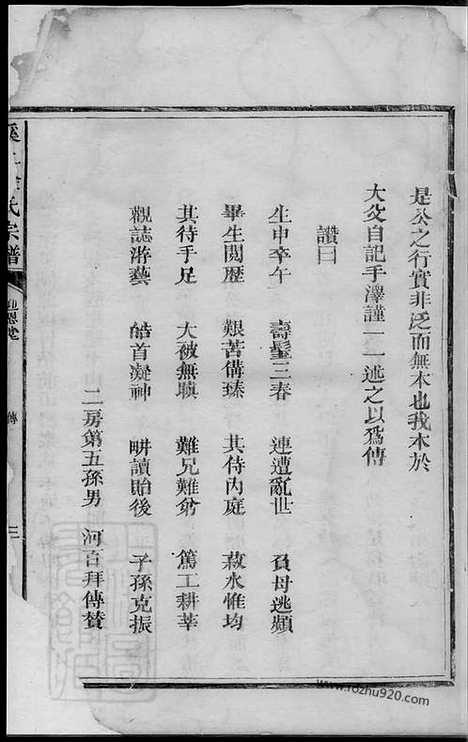 是公之行實非泛而無本也我本於
大父自記手澤謹一一述之以爲傳
讚曰
生申卒午 壽髦三春 連遭亂世 負母逃頻
畢生閲歷 艱苦備臻 其侍內庭 菽水惟均
其待手足 大被無嗔 難兄難弟 篤工耕莘
觀誌游藝 皓首凝神 畊讀貽後 子孫克振
二房第五孫男 河言拜傳贊
氏宗譜
傳
三
www.rozhu920.com